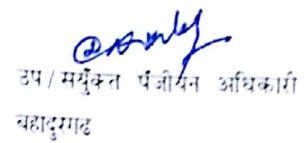 उप / सयुँक्त पंजीयन अधिकारी
बहादुरगढ